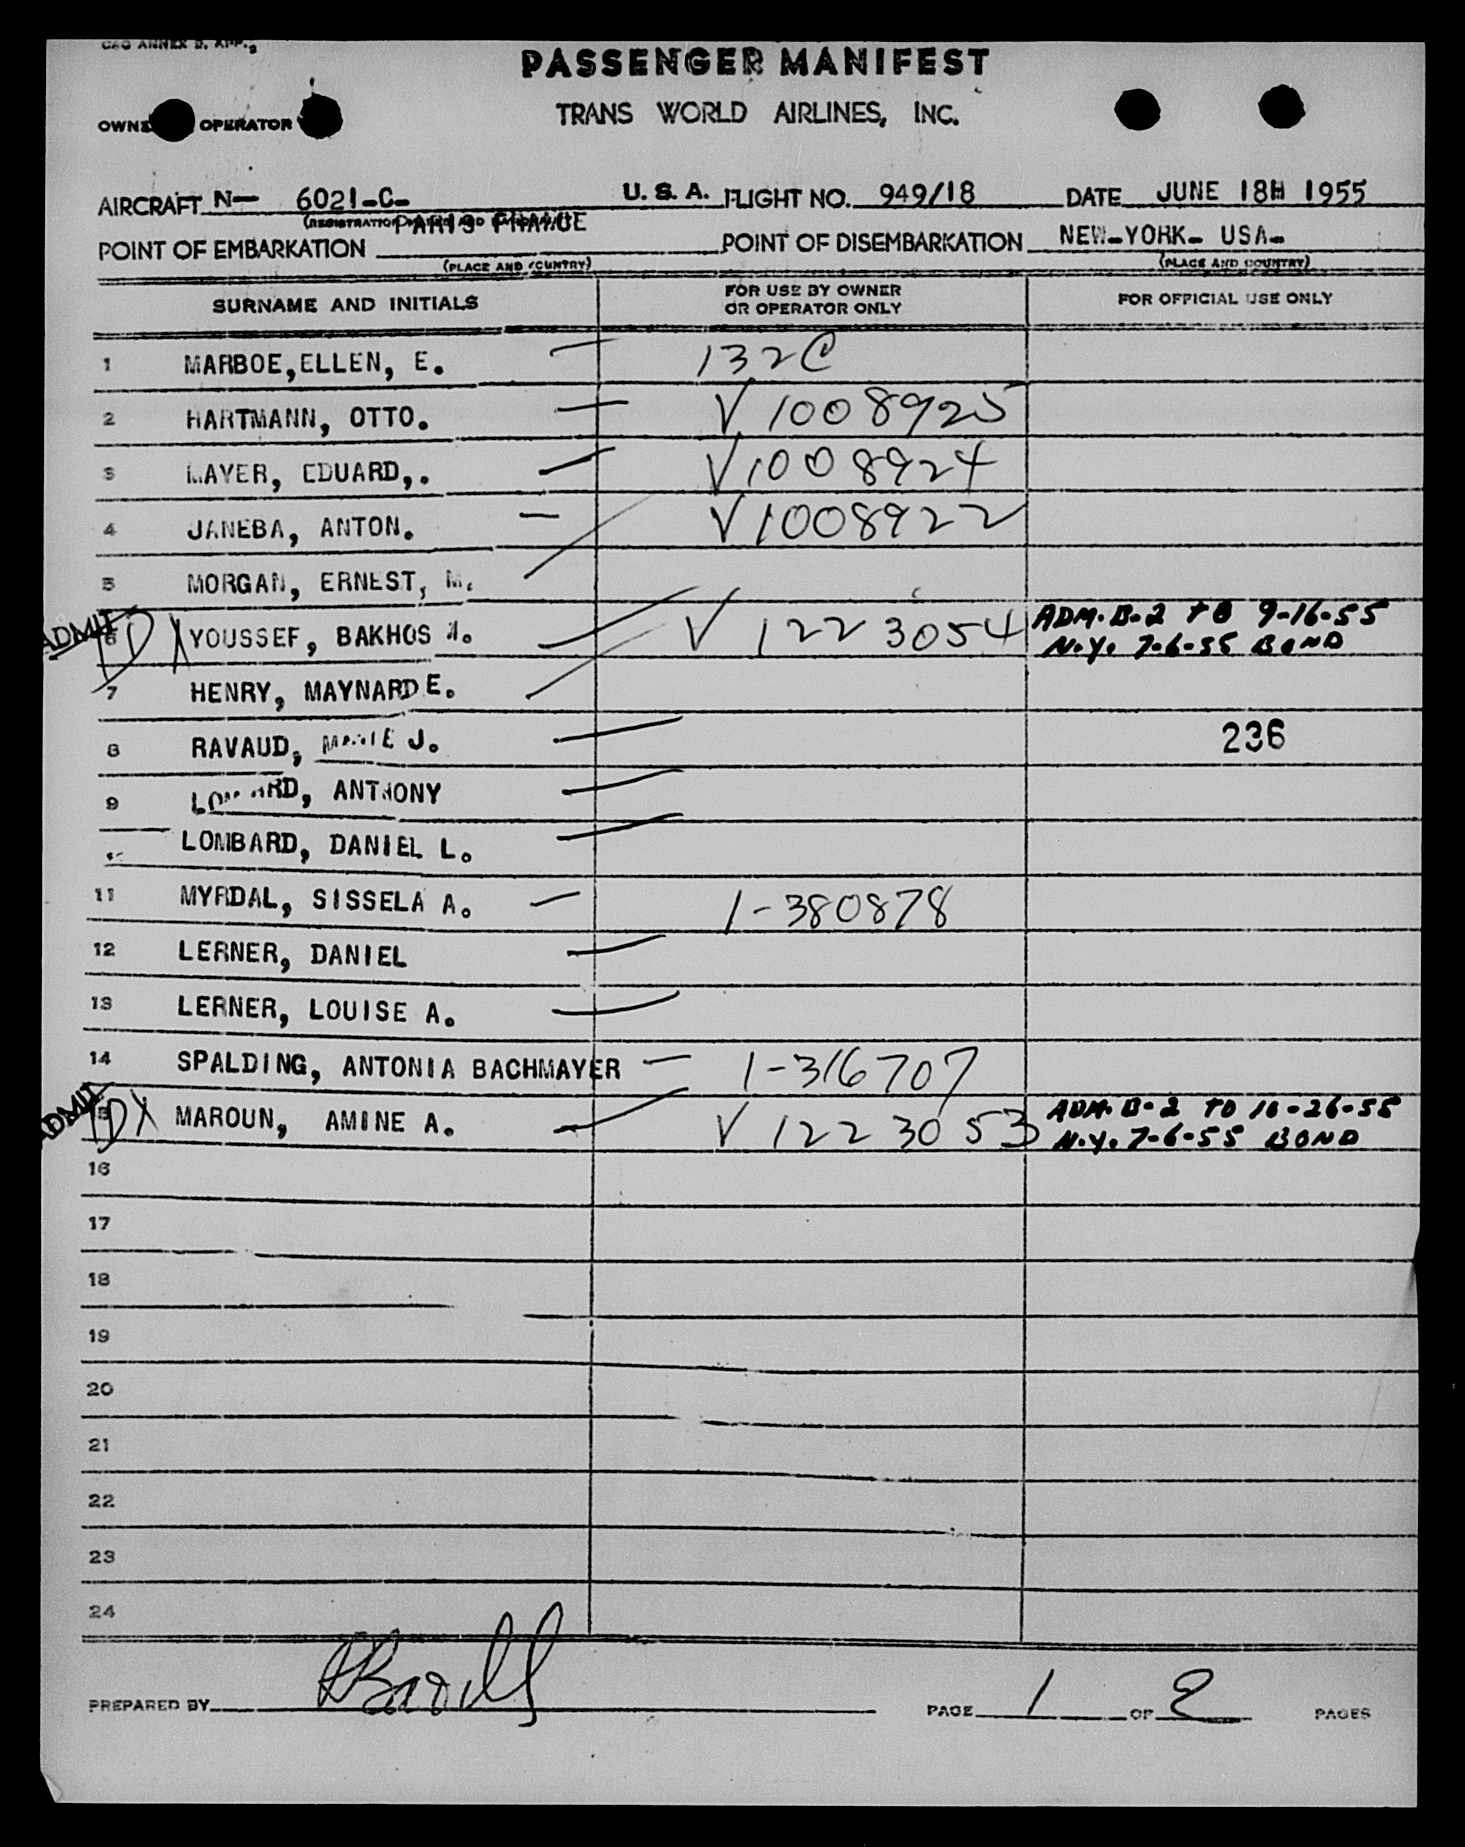 CAO ANNEX 9, APP.
PASSENGER MANIFEST
TRANS WORLD AIRLINES, INC.
OPERATOR
AIRCRAFT N- 6021-C- U.S.A. FLIGHT NO. 949/18 DATE JUNE 18H 1955
PARIS FRANCE
POINT OF EMBARKATION POINT OF DISEMBARKATION NEW-YORK- USA-
(PLACE AND COUNTRY) (PLACE AND COUNTRY)
SURNAME AND INITIALS FOR USE BY OWNER OR OPERATOR ONLY FOR OFFICIAL USE ONLY
1 MARBOE, ELLEN, E. 132C
2 HARTMANN, OTTO. V 1008925
3 EDUARD,. V1008924
4 JANEBA, ANTON. V1008922
5 MORGAN, ERNEST, M.
ADMIT 6 D X YOUSSEF, BAKHOS V 1223054 ADM. B-2 TO 9-16-55
N.Y. 7-6-55 BOND
7 HENRY, MAYNARD E.
8 RAVAUD, MARIE J. 236
9 LOMBARD, ANTHONY
LOMBARD, DANIEL L.
11 MYRDAL, SISSELA A. 1-380878
12 LERNER, DANIEL
13 LERNER, LOUISE A.
14 SPALDING, ANTONIA BACHMAYER 1-316707
ADMIT 15 D X MAROUN, AMINE A. V 1223053 ADM. B-2 TO 10-26-55
N.Y. 7-6-55 BOND
16
17
18
19
20
21
22
23
24
PREPARED BY PAGE 1 OF 2 PAGES